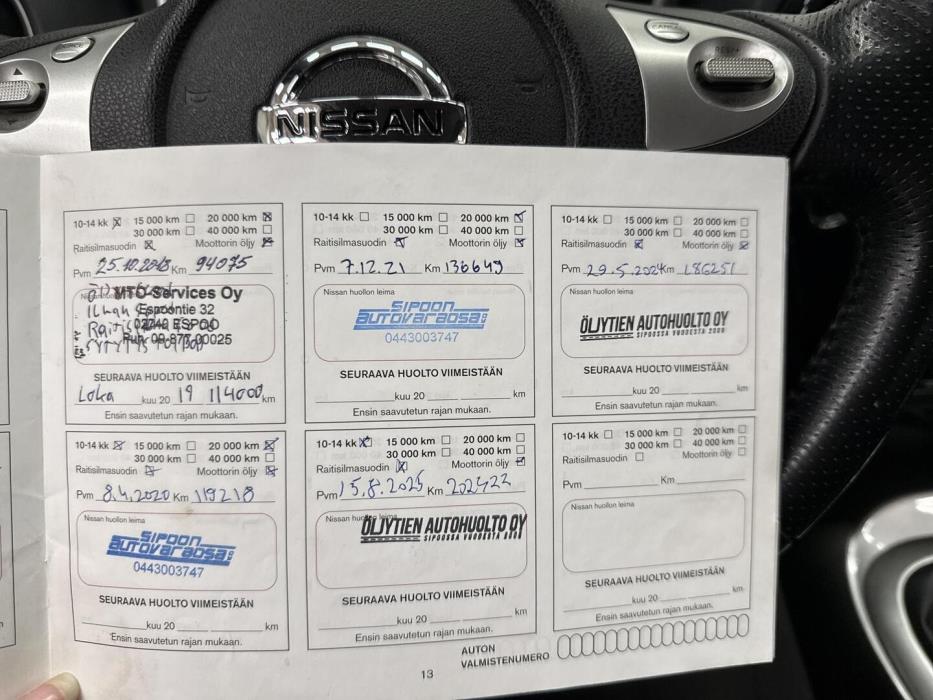 CANCEL
RES/+
NISSAN
10-14 kk 15 000 km 20 000 km
30 000 km 40 000 km
Raitisilmasuodin Moottorin öljy
Pvm 25.10.2018 Km 94075
MTO-Services Oy
Espoontie 32
02740 ESPOO
Puh. 09-873 00025
SEURAAVA HUOLTO VIIMEISTÄÄN
Loka kuu 20 19 114000 km
Ensin saavutetun rajan mukaan.
10-14 kk 15 000 km 20 000 km
30 000 km 40 000 km
Raitisilmasuodin Moottorin öljy
Pvm 7.12.21 Km 136649
Nissan huollon leima
SIPOON
AUTOVARAOSA
0443003747
SEURAAVA HUOLTO VIIMEISTÄÄN
kuu 20 km
Ensin saavutetun rajan mukaan.
10-14 kk 15 000 km 20 000 km
30 000 km 40 000 km
Raitisilmasuodin Moottorin öljy
Pvm 29.5.2024 Km 186251
Nissan huollon leima
ÖLJYTIEN AUTOHUOLTO OY
SIPOOSSA VUODESTA 2008
SEURAAVA HUOLTO VIIMEISTÄÄN
kuu 20 km
Ensin saavutetun rajan mukaan.
10-14 kk 15 000 km 20 000 km
30 000 km 40 000 km
Raitisilmasuodin Moottorin öljy
Pvm 8.4.2020 Km 119218
Nissan huollon leima
SIPOON
AUTOVARAOSA
0443003747
SEURAAVA HUOLTO VIIMEISTÄÄN
kuu 20 km
Ensin saavutetun rajan mukaan.
10-14 kk 15 000 km 20 000 km
30 000 km 40 000 km
Raitisilmasuodin Moottorin öljy
Pvm 15.8.2025 Km 202422
Nissan huollon leima
ÖLJYTIEN AUTOHUOLTO OY
SIPOOSSA VUODESTA 2008
SEURAAVA HUOLTO VIIMEISTÄÄN
kuu 20 km
Ensin saavutetun rajan mukaan.
10-14 kk 15 000 km 20 000 km
30 000 km 40 000 km
Raitisilmasuodin Moottorin öljy
Pvm Km
Nissan huollon leima
SEURAAVA HUOLTO VIIMEISTÄÄN
kuu 20 km
Ensin saavutetun rajan mukaan.
AUTON
VALMISTENUMERO
13